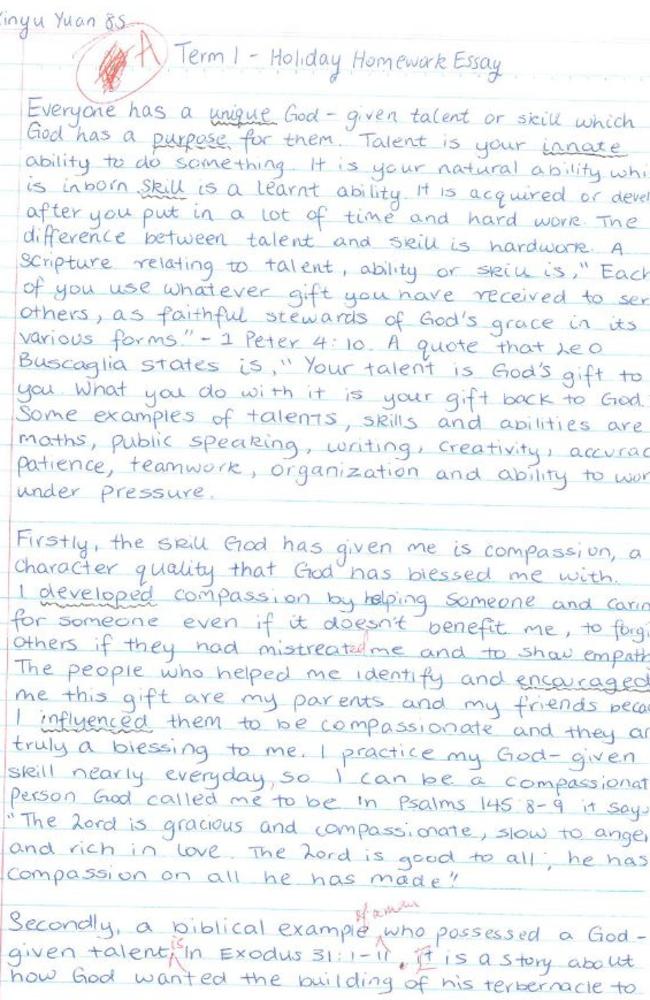 Xinyu Yuan 8S
A
Term 1 - Holiday Homework Essay
Everyone has a unique God-given talent or skill which
God has a purpose for them. Talent is your innate
ability to do something. It is your natural ability whi
is inborn skill is a learnt ability. It is acquired or devel
after you put in a lot of time and hard work. The
difference between talent and skill is hardwork. A
scripture relating to talent, ability or skill is, "Each
of you use whatever gift you have received to ser
others, as faithful stewards of God's grace in its
various forms." - 1 Peter 4:10. A quote that Leo
Buscaglia states is, "Your talent is God's gift to
you. What you do with it is your gift back to God.
Some examples of talents, skills and abilities are
maths, public speaking, writing, creativity, accurac
patience, teamwork, organization and ability to wor
under pressure.
Firstly, the skill God has given me is compassion, a
character quality that God has blessed me with.
I developed compassion by helping someone and carin
for someone even if it doesn't benefit me, to forgi
others if they had mistreated me and to show empath
The people who helped me identify and encouraged
me this gift are my parents and my friends beca
I influenced them to be compassionate and they ar
truly a blessing to me. I practice my God-given
skill nearly everyday, so I can be a compassionat
person God called me to be. In Psalms 145:8-9 it says
"The Lord is gracious and compassionate, slow to anger
and rich in love. The Lord is good to all; he has
compassion on all he has made."
of a man
Secondly, a biblical example who possessed a God-
given talent is in Exodus 31:1-11. It is a story about
how God wanted the building of his terbernacle to